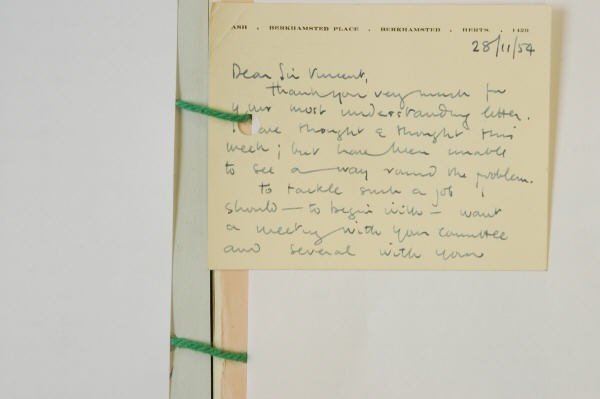 ASH . BERKHAMSTED PLACE . BERKHAMSTED . HERTS . 1429
28/11/54
Dear Sir Vincent,
Thank you very much for
your most understanding letter.
I have thought & thought this
week; but have been unable
to see a way round the problem.
To tackle such a job I
should — to begin with — want
a meeting with your committee
and several with your